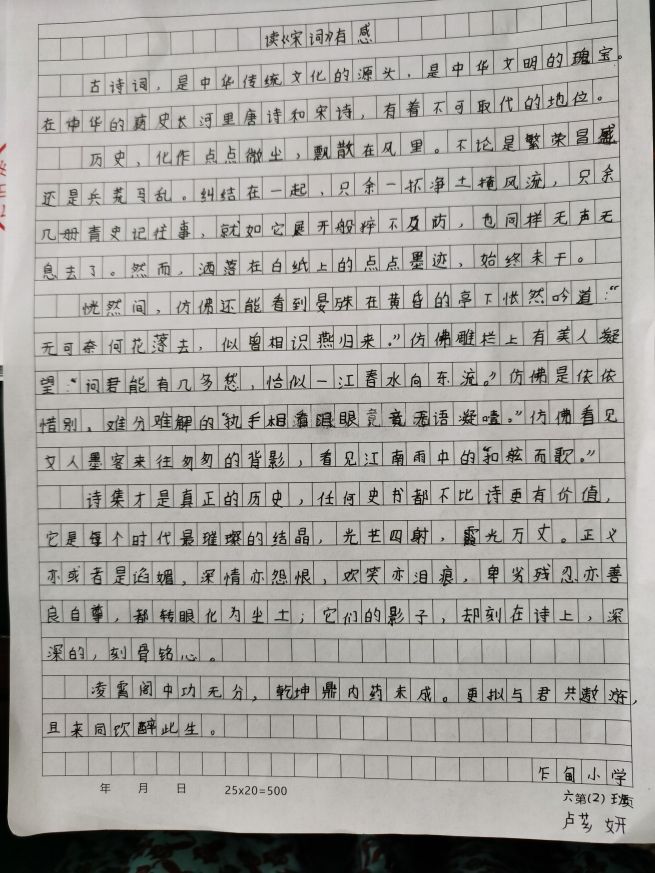 读《宋词》有感
古诗词，是中华传统文化的源头，是中华文明的瑰宝。
在中华的历史长河里唐诗和宋诗，有着不可取代的地位。
历史、化作点点微尘，飘散在风里。不论是繁荣昌盛
还是兵荒马乱。纠结在一起，只余一抔净土掩风流，只余
几册青史记往事，就如它展开般猝不及防，也同样无声无
息去了。然而，洒落在白纸上的点点墨迹，始终未干。
恍然间，仿佛还能看到晏殊在黄昏的亭下怅然吟道："
无可奈何花落去，似曾相识燕归来。"仿佛雕栏上有美人凝
望："问君能有几多愁，恰似一江春水向东流。"仿佛是依依
惜别，难分难解的"执手相看泪眼竟竟无语凝噎。"仿佛看见
文人墨客来往匆匆的背影，看见江南雨中的"和舷而歌。"
诗集才是真正的历史，任何史书都不比诗更有价值，
它是每个时代最璀璨的结晶，光芒四射，霞光万丈。正义
亦或者是谄媚，深情亦怨恨，欢笑亦泪痕，卑劣残忍亦善
良自尊，都转眼化为尘土；它们的影子，却刻在诗上，深
深的，刻骨铭心。
凌霄阁中功无分，乾坤鼎内药未成。更拟与君共遨游，
且来同饮醉此生。
乍甸小学
年 月 日 25×20=500
六第(2)班
卢 妍